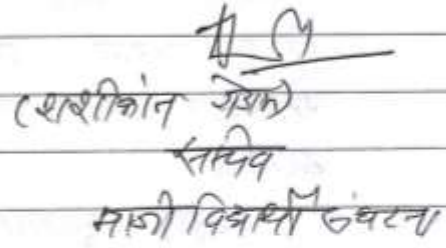 (शशीकांत गेडाम)
सचिव
माजी विद्यार्थी संघटना